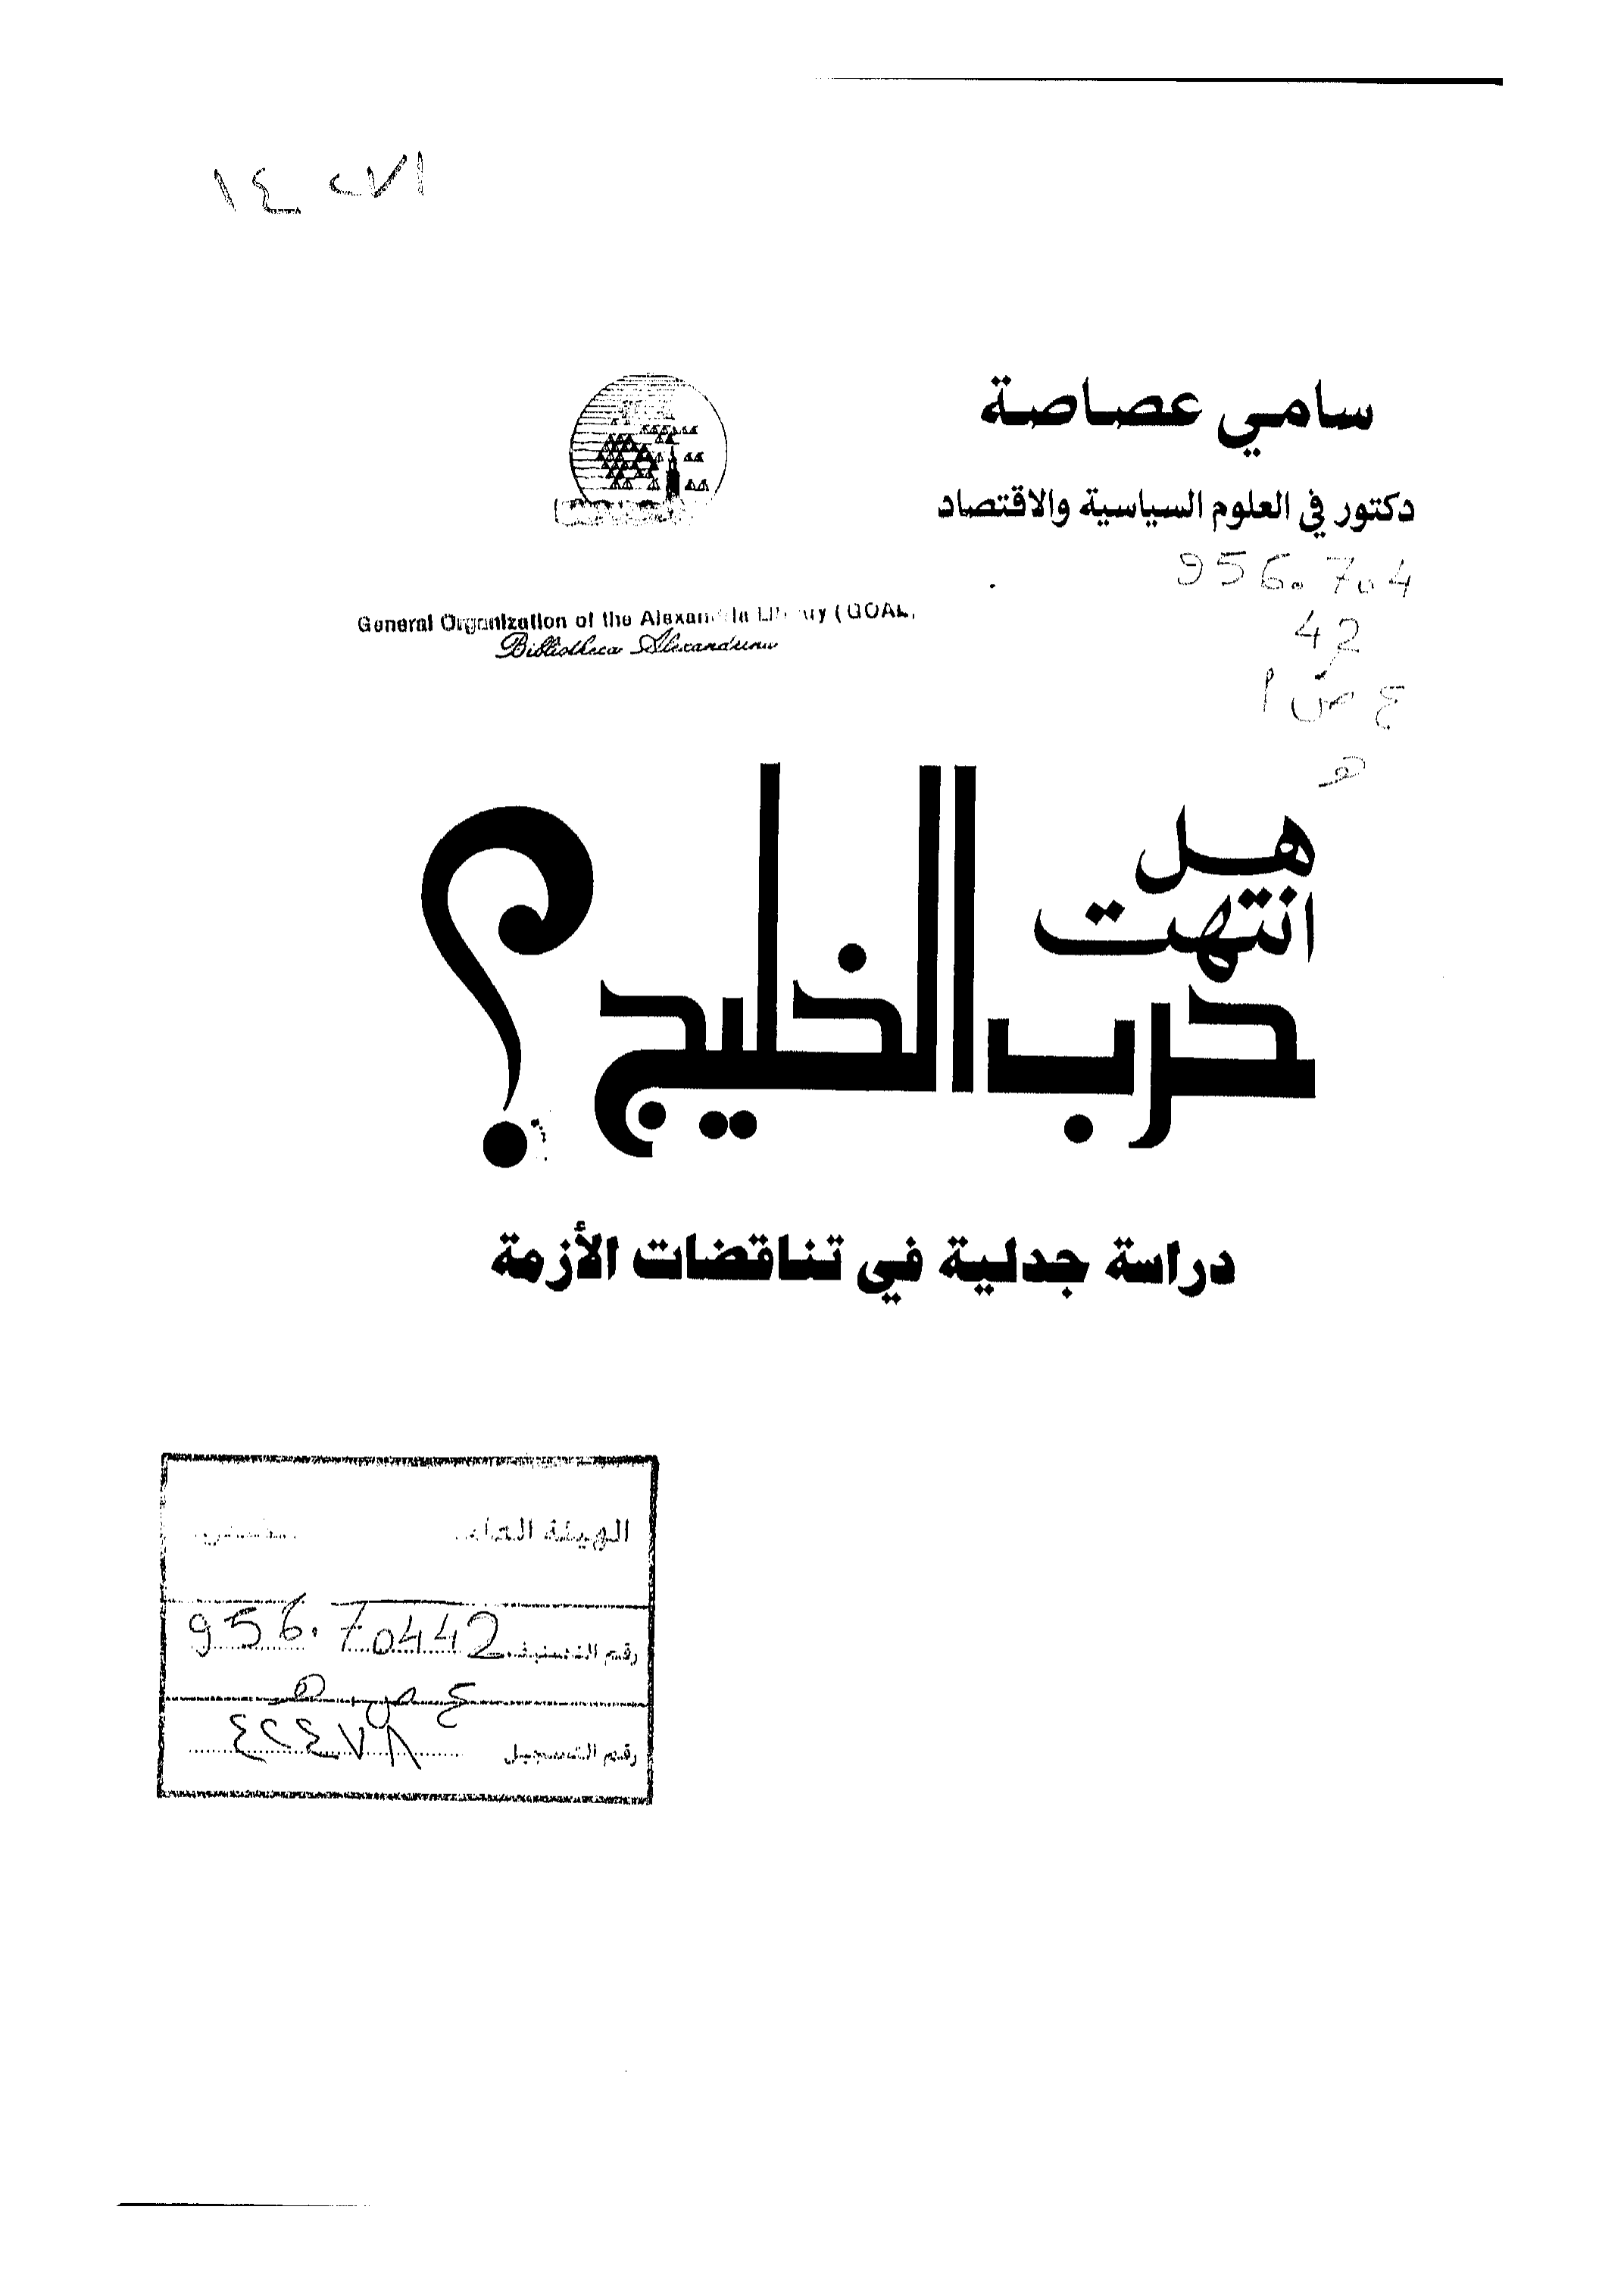 سامي عصاصة
دكتور في العلوم السياسية والاقتصاد
956.704
42
ع ص ا
هـ
General Organization of the Alexandria Library (GOAL
Bibliotheca Alexandrina
هل
انتهت
حرب الخليج؟
دراسة جدلية في تناقضات الأزمة
الهيئة العامة
رقم التصنيف 956.70442
ع ص هـ
رقم التسجيل ٤٢٤٧٨